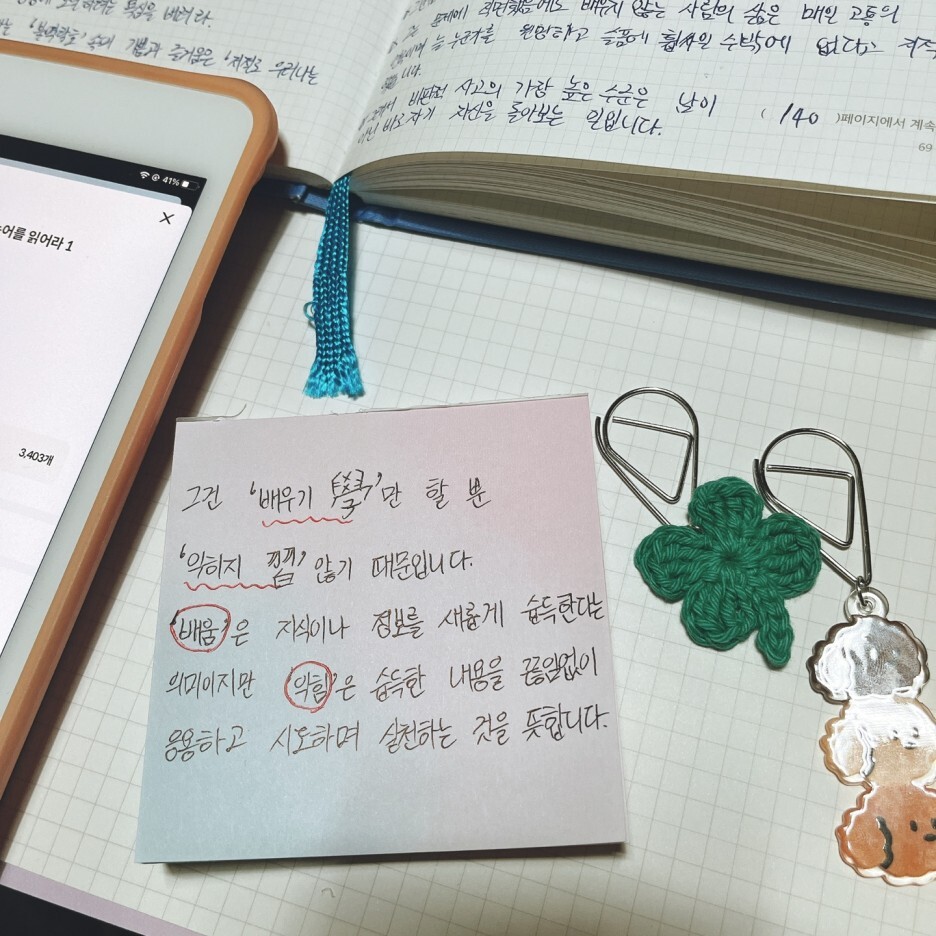 기쁨과 즐거움은
문제에 직면했음에도 배우지 않는 사람의 삶은 매일 고통의
늘 누군가를 원망하고 슬픔에 휩싸일 수밖에 없다는
니다.
비판적 사고의 가장 높은 수준은 남이
아닌 바로 자기 자신을 돌아보는 일입니다.
( 140 )페이지에서 계속
69
41%
어를 읽어라 1
3,403개
그건 '배우기 學'만 할 뿐
'익히지 習' 않기 때문입니다.
'배움'은 지식이나 정보를 새롭게 습득한다는
의미이지만 '익힘'은 습득한 내용을 끊임없이
응용하고 시도하며 실천하는 것을 뜻합니다.